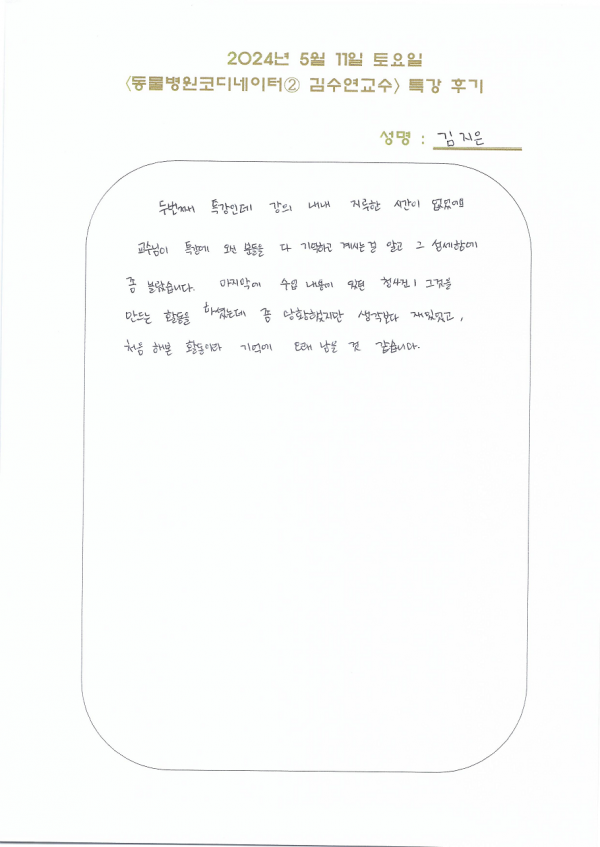 2024년 5월 11일 토요일
<동물병원코디네이터② 김수연교수> 특강 후기
성명 : 김지은
두번째 특강인데 강의 내내 지루한 시간이 없었어요
교수님이 특강에 오신 분들을 다 기억하고 계시는걸 알고 그 섬세함에
좀 놀랐습니다. 마지막에 수업 내용이 있던 그것을
만드는 활동을 하셨는데 좀 당황했지만 생각보다 재밌었고,
처음 해본 활동이라 기억에 오래 남을 것 같습니다.